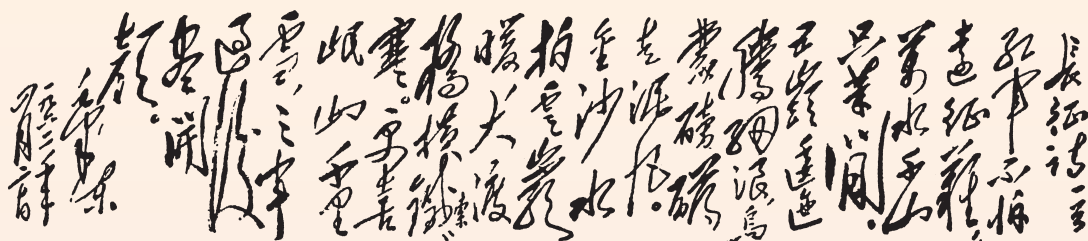 長征詩一首
紅軍不怕
遠征難，
萬水千山
只等閒。
五嶺逶迤
騰細浪，烏
蒙磅礴
走泥丸。
金沙水
拍雲崖
暖，大渡
橋橫鐵索
寒。更喜
岷山千里
雪，三軍
過後
盡開
顏。
毛澤東
一九六二年
四月